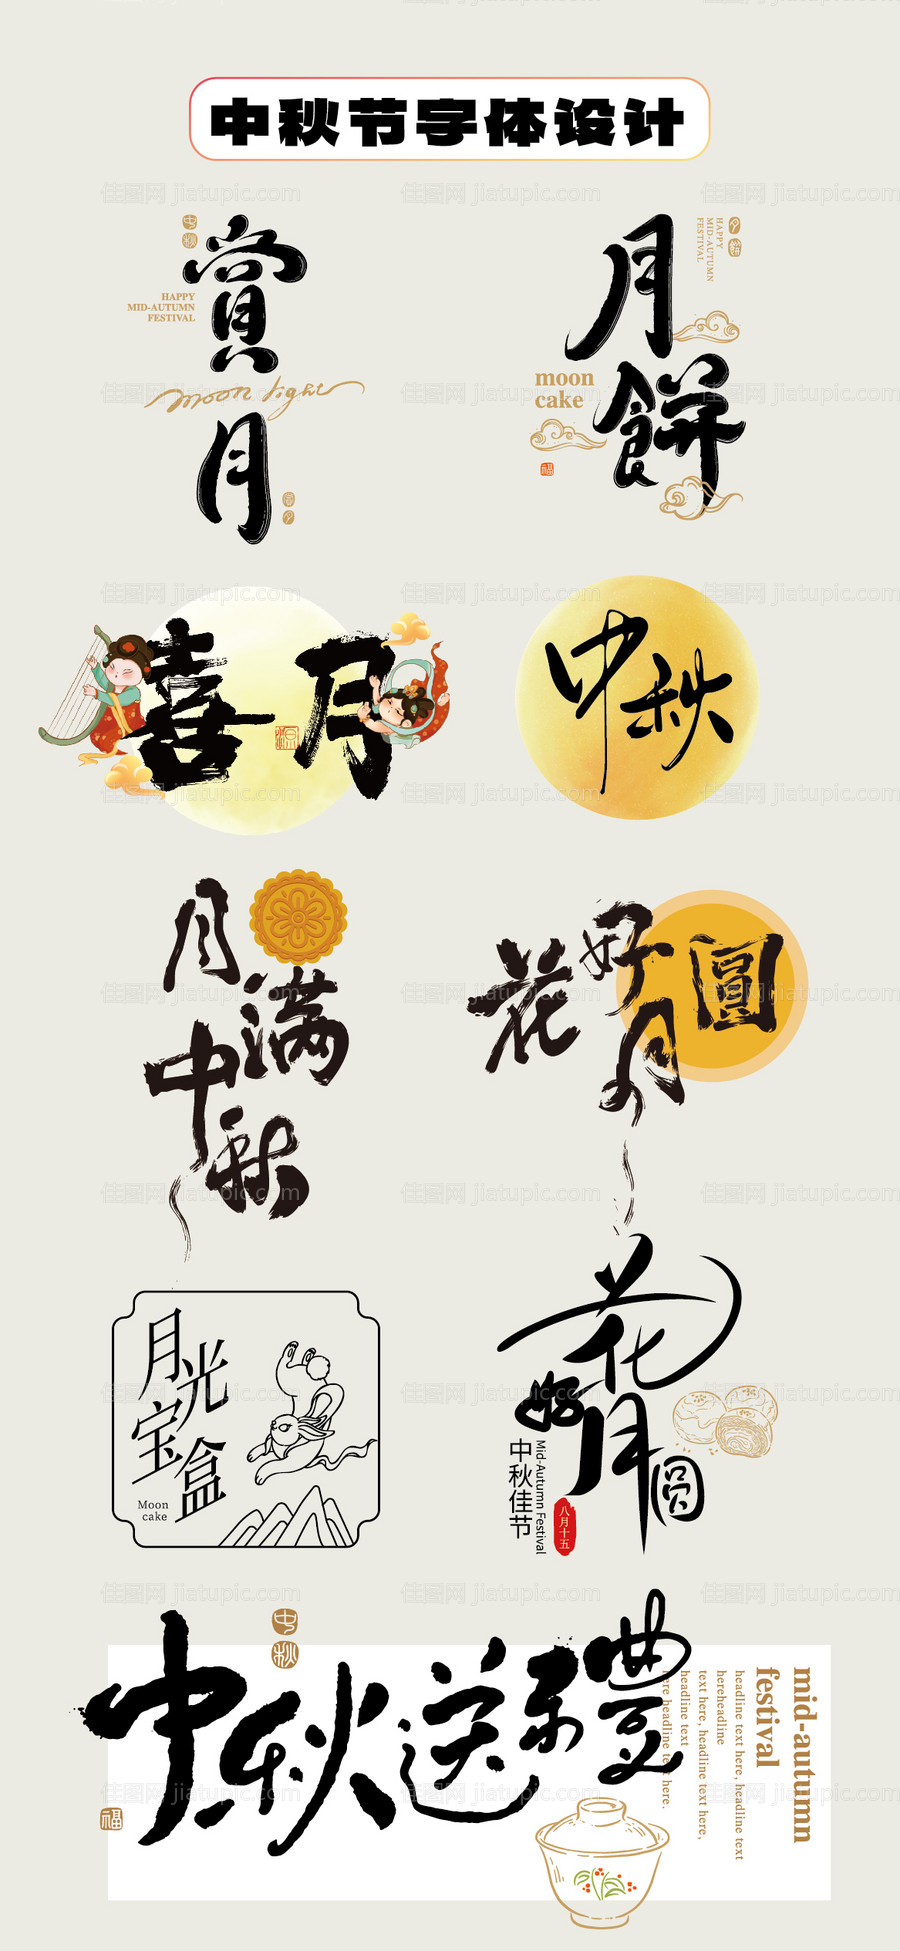 中秋节字体设计
佳图网 jiatupic.com
中秋
HAPPY
MID-AUTUMN
FESTIVAL
赏月
moon light
月餅
HAPPY
MID-AUTUMN
FESTIVAL
moon
cake
福
喜月
中秋
月满
中秋
花好月圆
月光
宝盒
Moon
cake
花好月圆
Mid-Autumn Festival
中秋佳节
八月十五
中秋
中秋送禮
福
mid-autumn
festival
headline text here, headline text
hereheadline
text here, headline text here,
headline text
here headline text here.